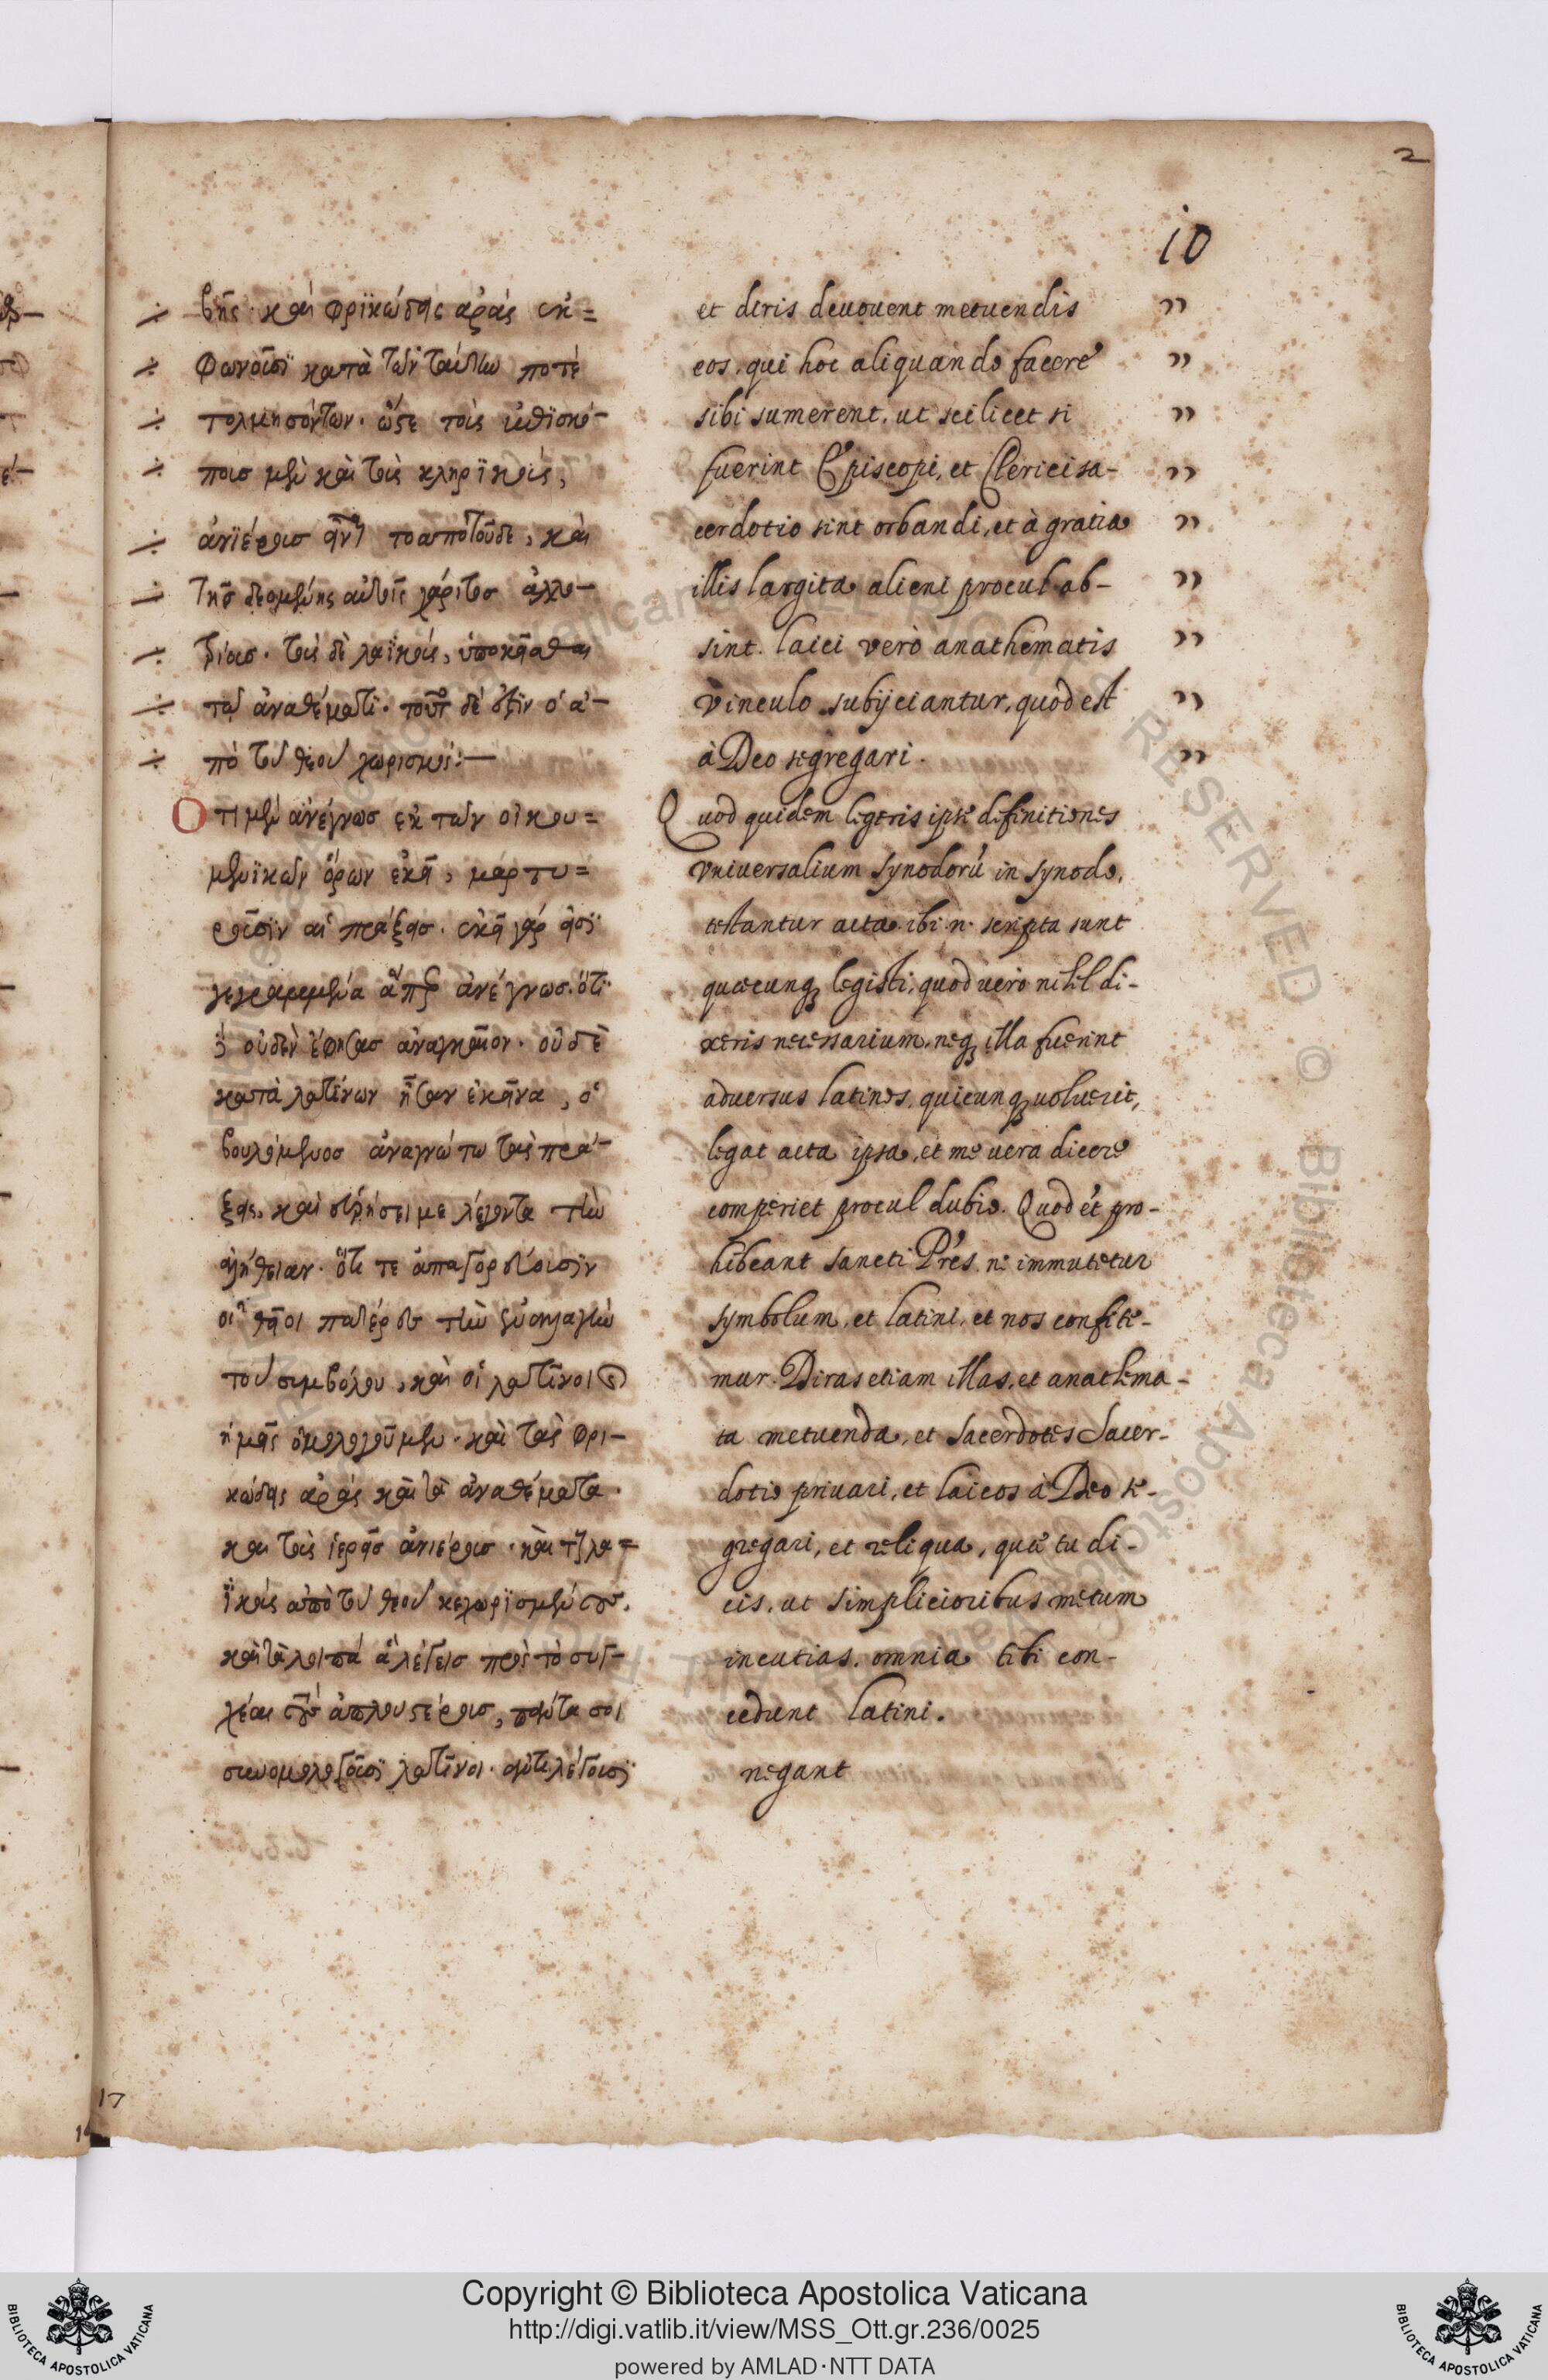 2
10
βῆς· καὶ φρϊκώδεις ἀρὰς ἐκ=
φωνοῦσϊ κατὰ τῶν ταύτην ποτὲ
τολμησόντων· ὥστε τοὺς ἐπϊσκό-
πουσ μὲν καὶ τοὺς κληρϊκοὺς,
ἀνϊέρουσ εἶναι τοαπὸτοῦδε, καὶ
τῆσ δεομένης αὐτοῖς χάριτοσ ἀλλο-
τρίουσ· τοὺς δὲ λαϊκοὺς, ὑποκεῖσθαι
τῶ ἀναθέματϊ· τοῦτο δέ ἐστϊν ὁ ἀ-
πὸ τοῦ θεοῦ χωρισμός:—
Οτι μὲν ἀνέγνωσ ἐκ τῶν οἰκου=
μενϊκῶν ὅρων ἐκεῖ, μαρτυ=
ροῦσϊν αἱ πράξεισ· ἐκεῖ γάρ εἰσϊ
γεγραμμένα ἅπερ ἀνέγνωσ· ὅτϊ
δὲ οὐδὲν ἔφησασ ἀναγκαῖον· οὐδὲ
κατὰ λατίνων ἦσαν ἐκεῖνα, ὁ
βουλόμενοσ ἀναγνώτω τὰς πρά-
ξεις, καὶ εὑρήσει με λέγοντα τὴν
ἀλήθειαν· ὅτι τε ἀπαγορεύουσϊν
οἱ θεῖοι πατέρες τὴν ἐξαλλαγὴν
τοῦ συμβόλου, καὶ οἱ λατῖνοι καὶ
ἡμεῖς ὁμολογοῦμεν· καὶ τὰς φρι-
κώδεις ἀρὰς καὶ τὰ ἀναθέματα·
καὶ τοὺς ἱερεῖσ ἀνιέρουσ· καὶ τοὺς λα=
ϊκοὺς ἀπὸ τοῦ θεοῦ κεχωρϊσμένους.
καὶ τὰ λοιπὰ ἃ λέγεισ πρὸς τὸ συγ-
χέαι τοὺς ἁπλουστέρουσ, πάντα σοι
συνομολογοῦσϊ λατῖνοι· ἀντιλέγουσϊ
et diris deuouent metuendis
eos, qui hoc aliquando facere
sibi sumerent, ut scilicet si
fuerint Episcopi, et Clerici sa-
cerdotio sint orbandi, et à gratia
illis largita alieni procul ab-
sint. laici verò anathematis
vinculo subijciantur, quod est
à Deo segregari.
Quod quidem legeris ipse definitiones
vniuersalium synodorũ in synodo,
testantur acta. ibi .n. scripta sunt
quæcunq; legisti, quod uero nihil di-
xeris necessarium. neq; illa fuerint
aduersus latinos, quicunq; uoluerit,
legat acta ipsa, et me uera dicere
comperiet procul dubio. Quod et pro-
hibeant sancti Pr̃es, ne immutetur
symbolum, et latini, et nos confite-
mur. Diras etiam illas, et anathema-
ta metuenda, et Sacerdotes Sacer-
dotio priuari, et laicos à Deo se-
gregari, et reliqua, quæ tu di-
cis, ut simplicioribus metum
incutias, omnia tibi con-
cedunt latini.
negant
17
Copyright © Biblioteca Apostolica Vaticana
http://digi.vatlib.it/view/MSS_Ott.gr.236/0025
powered by AMLAD·NTT DATA